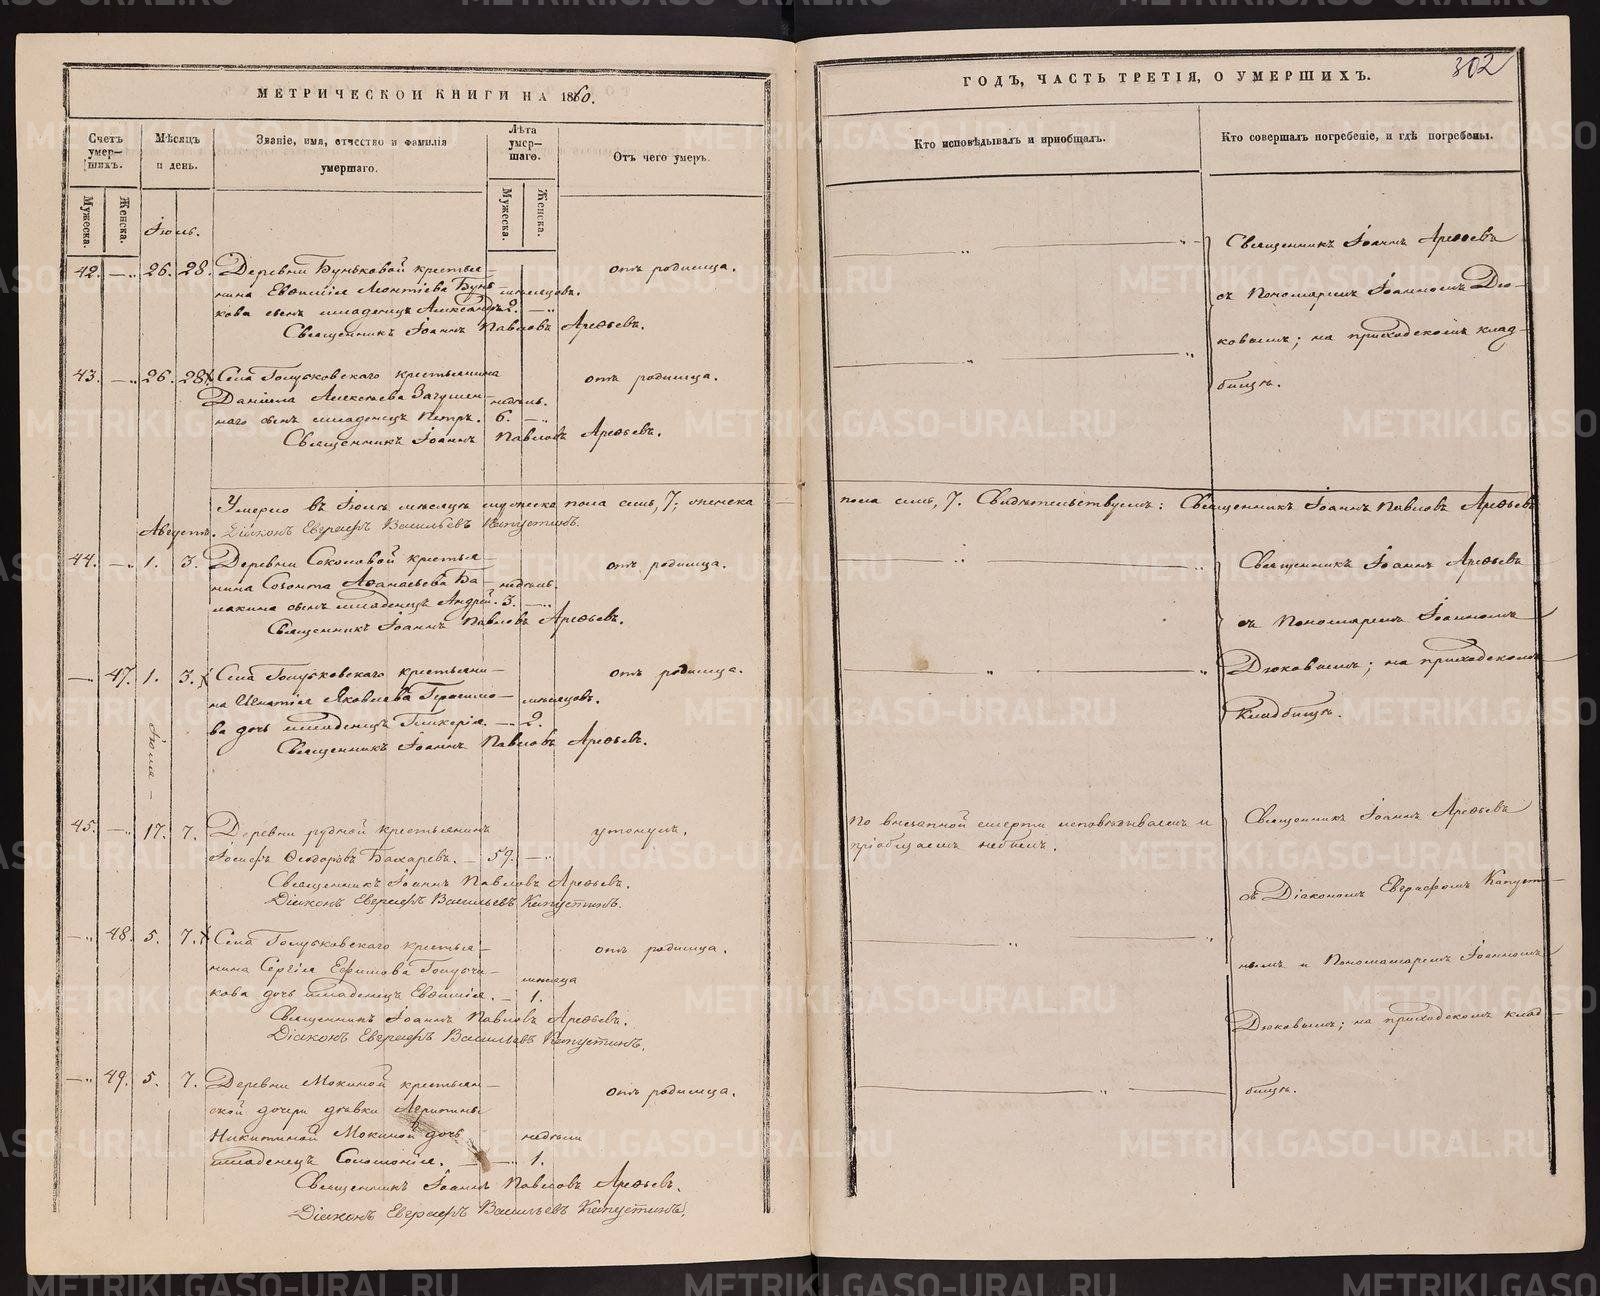 МЕТРИЧЕСКОЙ КНИГИ НА 1860.
Счетъ умер-шихъ.
Мѣсяцъ и день.
Званіе, имя, отчество и фамилія умершаго.
Лѣта умер-шаго.
Отъ чего умеръ.
Мужеска.
Женска.
Мужеска.
Женска.
Іюль.
42. — „ 26. 28. Деревни Буньковой крестья- отъ родимца.
нина Евѳимія Леонтіева Бунь- мѣсяцовъ.
кова сынъ младенецъ Александръ 2. — „
Священникъ Іоаннъ Павловъ Арефьевъ.
43. — „ 26. 28. Села Голубковскаго крестьянина отъ родимца.
Даніила Алексѣева Загумен- недѣль.
наго сынъ младенецъ Петръ. 6. — „
Священникъ Іоаннъ Павловъ Арефьевъ.
Умерло въ Іюлѣ мѣсяцѣ мужеска пола семь, 7; женска
Августъ. Діаконъ Еверафъ Васильевъ Капустинъ.
44. — „ 1. 3. Деревни Соколовой крестья- отъ родимца.
нина Созонта Аѳанасьева Ба- недѣль.
лакина сынъ младенецъ Андрей. 3. — „
Священникъ Іоаннъ Павловъ Арефьевъ.
— „ 47. 1. 3. Села Голубковскаго крестьяни- отъ родимца.
на Игнатія Яковлева Герасимо- мѣсяцовъ.
ва дочь младенецъ Гликерія. — „ 2.
Священникъ Іоаннъ Павловъ Арефьевъ.
Іюля —
45. — „ 17. 7. Деревни рудной крестьянинъ утонулъ.
Іосифъ Ѳеодоровъ Бахаревъ. — 59. — „
Священникъ Іоаннъ Павловъ Арефьевъ.
Діаконъ Еверафъ Васильевъ Капустинъ.
— „ 48. 5. 7. Села Голубковскаго крестья- отъ родимца.
нина Сергія Ефимова Голубчи- мѣсяца
кова дочь младенецъ Евѳимія. — 1.
Священникъ Іоаннъ Павловъ Арефьевъ.
Діаконъ Еверафъ Васильевъ Капустинъ.
— „ 49. 5. 7. Деревни Мокиной крестьян- отъ родимца.
ской дочери дѣвки
Никитиной Мокиной дочь недѣли
младенецъ Соломонія. — „ 1.
Священникъ Іоаннъ Павловъ Арефьевъ.
Діаконъ Еверафъ Васильевъ Капустинъ.
ГОДЪ, ЧАСТЬ ТРЕТІЯ, О УМЕРШИХЪ.
302
Кто исповѣдывалъ и пріобщалъ.
Кто совершалъ погребеніе, и гдѣ погребены.
Священникъ Іоаннъ Арефьевъ
съ Пономаремъ Іоанномъ Дю-
ковымъ; на приходскомъ клад-
бищѣ.
пола семь, 7. Свидѣтельствуемъ: Священникъ Іоаннъ Павловъ Арефьевъ
Священникъ Іоаннъ Арефьевъ
съ Пономаремъ Іоанномъ
Дюковымъ; на приходскомъ
Кладбищѣ.
По внезапной смерти исповѣдываемъ и
пріобщаемъ небылъ.
Священникъ Іоаннъ Арефьевъ
съ Діакономъ Еверафомъ Капусти-
нымъ и Пономаремъ Іоанномъ
Дюковымъ; на приходскомъ клад-
бищѣ.
METRIKI.GASO-URAL.RU